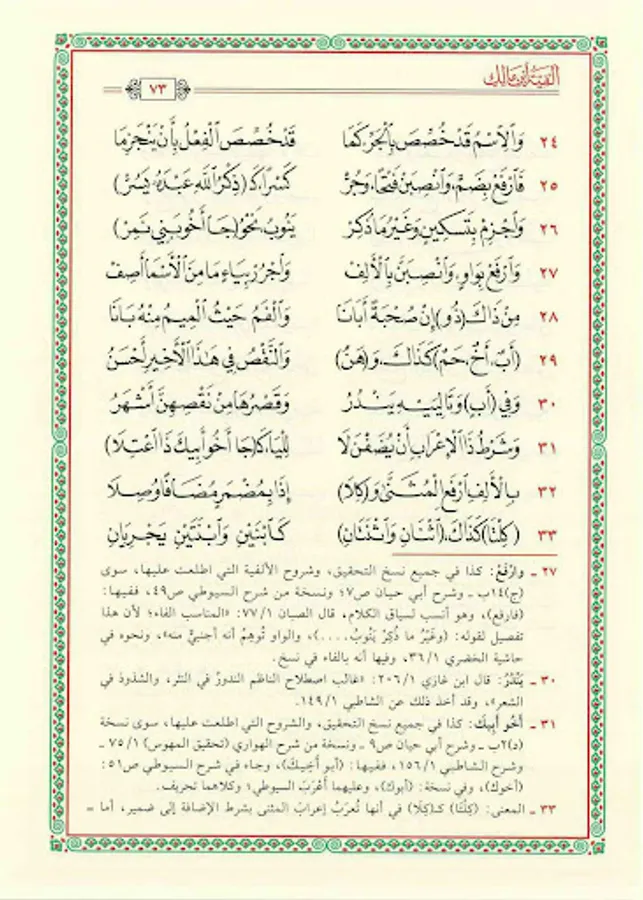 ألفية ابن مالك
٧٣
٢٤ وَالِاسْمُ قَدْ خُصِّصَ بِالْجَرِّ كَمَا قَدْ خُصِّصَ الْفِعْلُ بِأَنْ يَنْجَزِمَا
٢٥ فَارْفَعْ بِضَمٍّ، وَانْصِبَنْ فَتْحًا، وَجُرّْ كَسْرًا، كَـ(ذِكْرُ اللَّهِ عَبْدَهُ يَسُرّْ)
٢٦ وَاجْزِمْ بِتَسْكِينٍ وَغَيْرُ مَا ذُكِرْ يَنُوبُ، نَحْوُ (جَا أَخُو بَنِي نَمِرْ)
٢٧ وَارْفَعْ بِوَاوٍ، وَانْصِبَنَّ بِالْأَلِفْ وَاجْرُرْ بِيَاءٍ مَا مِنَ الْأَسْمَا أَصِفْ
٢٨ مِنْ ذَاكَ (ذُو) إِنْ صُحْبَةً أَبَانَا وَالْفَمُ حَيْثُ الْمِيمُ مِنْهُ بَانَا
٢٩ (أَبٌ، أَخٌ، حَمٌ) كَذَاكَ، وَ(هَنُ) وَالنَّقْصُ فِي هَذَا الْأَخِيرِ أَحْسَنُ
٣٠ وَفِي (أَبٍ) وَتَالِيَيْهِ يَنْدُرُ وَقَصْرُهَا مِنْ نَقْصِهِنَّ أَشْهَرُ
٣١ وَشَرْطُ ذَا الْإِعْرَابِ أَنْ يُضَفْنَ لَا لِلْيَا، كَـ(جَا أَخُو أَبِيكَ ذَا اعْتِلَا)
٣٢ بِالْأَلِفِ ارْفَعِ الْمُثَنَّى وَ(كِلَا) إِذَا بِمُضْمَرٍ مُضَافًا وُصِلَا
٣٣ (كِلْتَا) كَذَاكَ، (اثْنَانِ وَاثْنَتَانِ) كَـابْنَيْنِ وَابْنَتَيْنِ يَجْرِيَانِ
٢٧ ـ وارْفَعْ: كذا في جميع نسخ التحقيق، وشروح الألفية التي اطلعت عليها، سوى
(ج)١٤ب ـ وشرح أبي حيان ص٧؛ ونسخة من شرح السيوطي ص٤٩، ففيها:
(فارفع)، وهو أنسب لسياق الكلام، قال الصبان ٧٧/١: «المناسب الفاء؛ لأن هذا
تفصيل لقوله: (وغَيْرُ ما ذُكِرْ يَنُوبُ....)، والواو تُوهِمُ أنه أجنبيٌّ منه»، ونحوه في
حاشية الخضري ٣٦/١، وفيها أنه بالفاء في نسخ.
٣٠ ـ يَنْدُرُ: قال ابن غازي ٢٠٦/١: «غالب اصطلاح الناظم الندورُ في النثر، والشذوذ في
الشعر»، وقد أخذ ذلك عن الشاطبي ١٤٩/١.
٣١ ـ أَخُو أَبِيكَ: كذا في جميع نسخ التحقيق، والشروح التي اطلعت عليها، سوى نسخة
(د)٢ب ـ وشرح أبي حيان ص٩ ـ ونسخة من شرح الهواري (تحقيق المهوس) ٧٥/١ ـ
وشرح الشاطبي ١٥٦/١، ففيها: (أبو أخيكَ)، وجاء في شرح السيوطي ص٥١:
(أخوك)، وفي نسخة: (أبوك)، وعليهما أَعْرَبَ السيوطي؛ وكلاهما تحريف.
٣٣ ـ المعنى: (كِلْتَا) كـ(كِلَا) في أنها تُعرَبُ إعرابَ المثنى بشرط الإضافة إلى ضمير، أما =